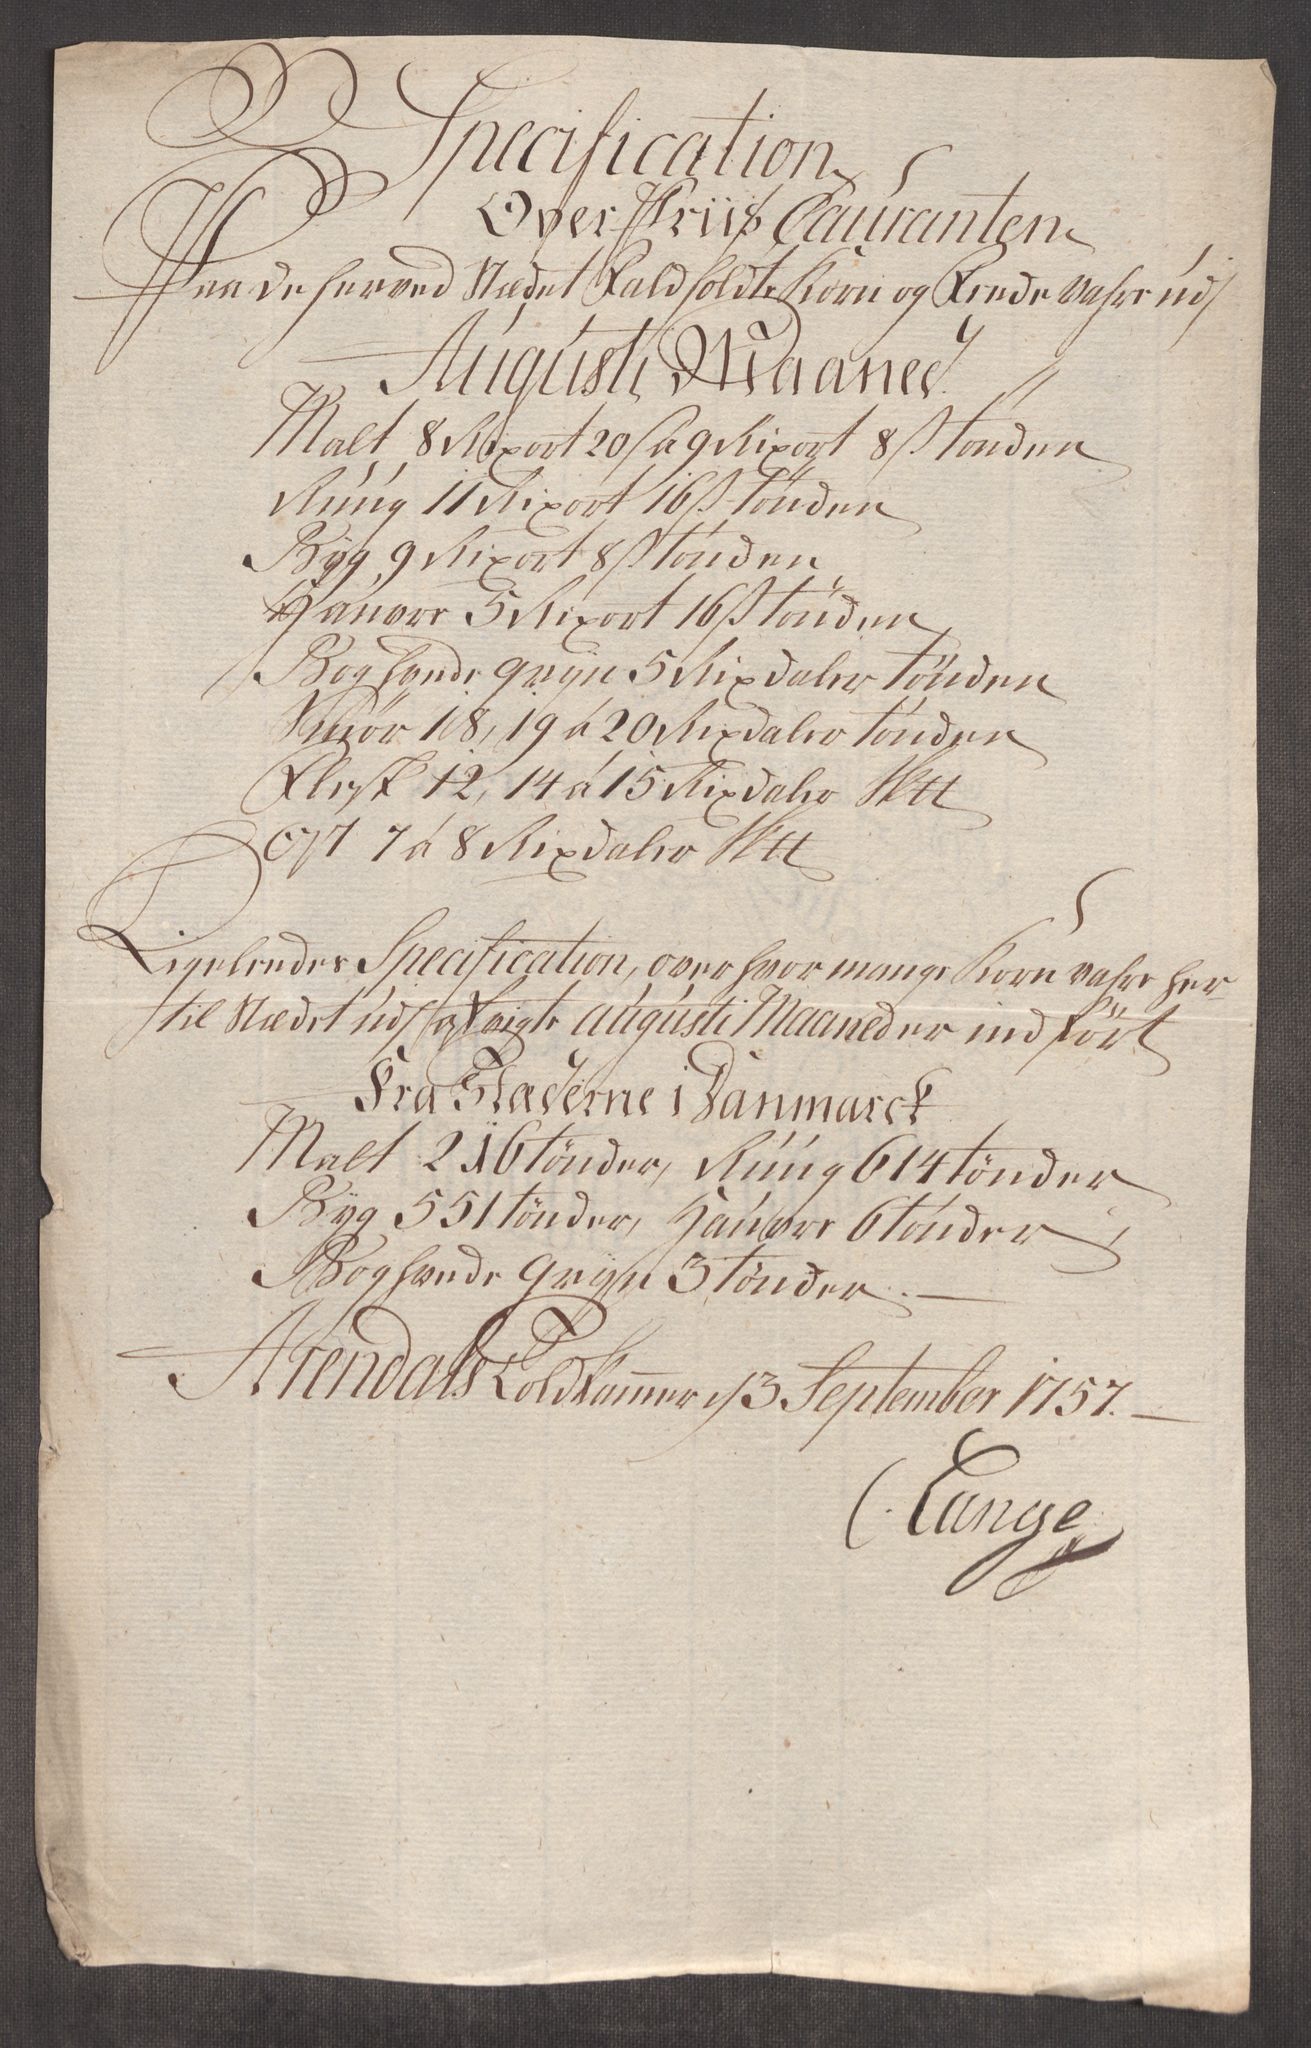 Specification
Over Priis Couranten
Paa de her ved Stædet Faldholdte Korn og Feede vahre udj
Augusti Maaned.
Malt 8 Rixort 20 s a 9 Rixort 8 s tønden
Rúúg 11 Rixort 16 s tønden
Byg 9 Rixort 8 s tønden
Haúvre 5 Rixort 16 s tønden
Boghvede gryn 5 Rixdaler tønden
Smør 18, 19 á 20 Rixdaler tønden
Flesk 12, 14 á 15 Rixdaler
Ost 7 á 8 Rixdaler
Ligeleedes Specification, over hvor mange Korn vahre her
til Stædet udj augusti Maaned er indført
Fra Stæderne i Danmarck
Malt 216 tønder, Rúúg 614 tønder
Byg 551 tønder, Haúvre 6 tønder
Boghvede gryn 3 tønder. —
Arendals Toldkammer 3 September 1757. —
C. Lange